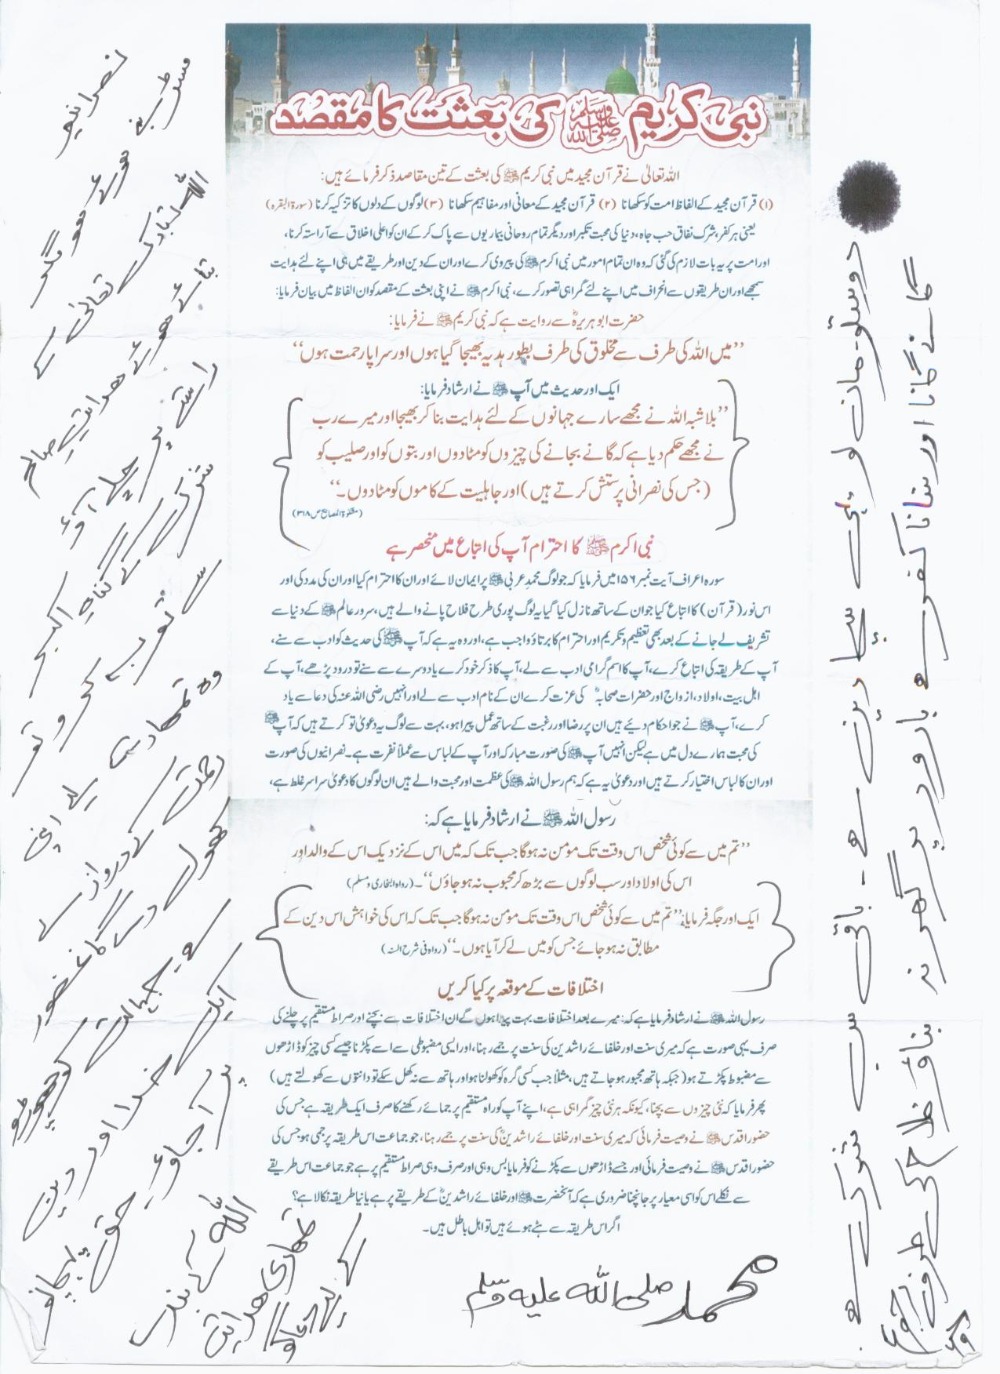 نبی کریم ﷺ کی بعثت کا مقصد
اللہ تعالیٰ نے قرآن مجید میں نبی کریم ﷺ کی بعثت کے تین مقاصد ذکر فرمائے ہیں:
(۱) قرآن مجید کے الفاظ امت کو سکھانا (۲) قرآن مجید کے معانی اور مفاہیم سکھانا (۳) لوگوں کے دلوں کا تزکیہ کرنا (سورۃ البقرہ)
یعنی ہر کفر، شرک نفاق حب جاہ، دنیا کی محبت تکبر اور دیگر تمام روحانی بیماریوں سے پاک کر کے ان کو اعلیٰ اخلاق سے آراستہ کرنا،
اور امت پر یہ بات لازم کی گئی کہ وہ ان تمام امور میں نبی اکرم ﷺ کی پیروی کرے اور ان کے دین اور طریقے میں ہی اپنے لئے ہدایت
سمجھے اور ان طریقوں سے انحراف میں اپنے لئے گمراہی تصور کرے، نبی اکرم ﷺ نے اپنی بعثت کے مقصد کو ان الفاظ میں بیان فرمایا:
حضرت ابو ہریرہؓ سے روایت ہے کہ نبی کریم ﷺ نے فرمایا:
’’میں اللہ کی طرف سے مخلوق کی طرف بطور ہدیہ بھیجا گیا ہوں اور سراپا رحمت ہوں‘‘
ایک اور حدیث میں آپ ﷺ نے ارشاد فرمایا:
’’بلاشبہ اللہ نے مجھے سارے جہانوں کے لئے ہدایت بنا کر بھیجا اور میرے رب
نے مجھے حکم دیا ہے کہ گانے بجانے کی چیزوں کو مٹا دوں اور بتوں کو اور صلیب کو
(جس کی نصرانی پرستش کرتے ہیں) اور جاہلیت کے کاموں کو مٹا دوں۔‘‘
(مشکوٰۃ المصابیح ص ۳۱۸)
نبی اکرم ﷺ کا احترام آپ کی اتباع میں منحصر ہے
سورہ اعراف آیت نمبر ۱۵۶ میں فرمایا کہ جو لوگ محمد عربی ﷺ پر ایمان لائے اور ان کا احترام کیا اور ان کی مدد کی اور
اس نور (قرآن) کا اتباع کیا جو ان کے ساتھ نازل کیا گیا یہ لوگ پوری طرح فلاح پانے والے ہیں، سرور عالم ﷺ کے دنیا سے
تشریف لے جانے کے بعد بھی تعظیم و تکریم اور احترام کا برتاؤ واجب ہے، اور وہ یہ ہے کہ آپ ﷺ کی حدیث کو ادب سے سنے،
آپ کے طریقہ کی اتباع کرے، آپ کا اسم گرامی ادب سے لے، آپ کا ذکر خود کرے یا دوسرے سے سنے تو درود پڑھے، آپ کے
اہل بیت، اولاد، ازواج اور حضرات صحابہؓ کی عزت کرے ان کے نام ادب سے لے اور انہیں رضی اللہ عنہ کی دعا سے یاد
کرے، آپ ﷺ نے جو احکام دیئے ہیں ان پر رضا اور رغبت کے ساتھ عمل پیرا ہو، بہت سے لوگ یہ دعویٰ تو کرتے ہیں کہ آپ ﷺ
کی محبت ہمارے دل میں ہے لیکن انہیں آپ ﷺ کی صورت مبارکہ اور آپ کے لباس سے عملاً نفرت ہے۔ نصرانیوں کی صورت
اور ان کا لباس اختیار کرتے ہیں اور دعویٰ یہ ہے کہ ہم رسول اللہ ﷺ کی عظمت اور محبت والے ہیں ان لوگوں کا دعویٰ سراسر غلط ہے،
رسول اللہ ﷺ نے ارشاد فرمایا ہے کہ:
’’تم میں سے کوئی شخص اس وقت تک مومن نہ ہوگا جب تک کہ میں اس کے نزدیک اس کے والد اور
اس کی اولاد اور سب لوگوں سے بڑھ کر محبوب نہ ہو جاؤں‘‘۔ (رواہ البخاری و مسلم)
ایک اور جگہ فرمایا: ’’تم میں سے کوئی شخص اس وقت تک مومن نہ ہوگا جب تک کہ اس کی خواہش اس دین کے
مطابق نہ ہو جائے جس کو میں لے کر آیا ہوں۔‘‘ (رواہ فی شرح السنہ)
اختلافات کے موقعہ پر کیا کریں
رسول اللہ ﷺ نے ارشاد فرمایا ہے کہ: میرے بعد اختلافات بہت پیدا ہوں گے ان اختلافات سے بچنے اور صراط مستقیم پر چلنے کی
صرف یہی صورت ہے کہ میری سنت اور خلفائے راشدین کی سنت پر جمے رہنا، اور ایسی مضبوطی سے اسے پکڑنا جیسے کسی چیز کو ڈاڑھوں
سے مضبوط پکڑتے ہو (جبکہ ہاتھ مجبور ہو جاتے ہیں، مثلاً جب کسی گرہ کو کھولنا ہو اور ہاتھ سے نہ کھل سکے تو دانتوں سے کھولتے ہیں)
پھر فرمایا کہ نئی چیزوں سے بچنا، کیونکہ ہر نئی چیز گمراہی ہے، اپنے آپ کو راہ مستقیم پر جمائے رکھنے کا صرف ایک طریقہ ہے جس کی
حضور اقدس ﷺ نے وصیت فرمائی کہ میری سنت اور خلفائے راشدینؓ کی سنت پر جمے رہنا، جو جماعت اس طریقہ پر جمی ہو جس کی
حضور اقدس ﷺ نے وصیت فرمائی اور جسے ڈاڑھوں سے پکڑنے کو فرمایا بس وہی اور صرف وہی صراط مستقیم پر ہے جو جماعت اس طریقے
سے نکلے اس کو اسی معیار پر جانچنا ضروری ہے کہ آنحضرت ﷺ اور خلفائے راشدینؓ کے طریقے پر ہے یا نیا طریقہ نکالا ہے؟
اگر اس طریقہ سے ہٹے ہوئے ہیں تو اہل باطل ہیں۔
محمد صلی اللہ علیہ وسلم
دوستو۔ مان لو یہی سچا دین ہے۔ باقی سب شرک ہے
گانے گانا اور سنانا کفر ہے بارود پر گھر نہ بناؤ فلاح کی طرف آجاؤ
نصرانیو
سڑے ہوئے لوگو
اللہ تبارک تعالیٰ کے
بتائے ہوئے ہدایت
راستے پر چلے آؤ
شرک کے گناہِ اکبر
سے توبہ کرو تو
وہ تمہارے لیے اپنی
رحمت کے دروازے
کھول دے گا ضرور
جہالت کو چھوڑو
ایک خدا اور دین
پر آجاؤ۔ حق پہچانو
اللہ کے بندے
تمھاری ہدایت
کے لیے دعا گو